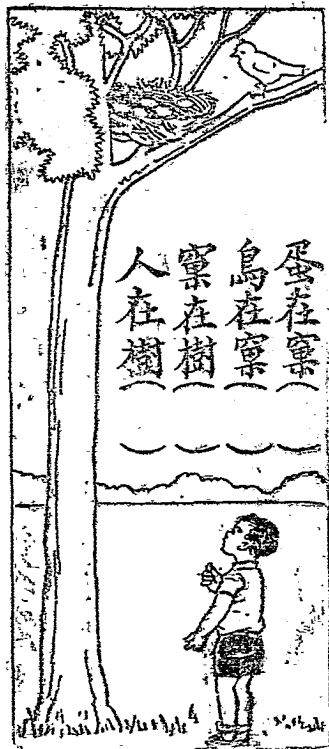 蛋在窠（　）
鳥在窠（　）
窠在樹（　）
人在樹（　）